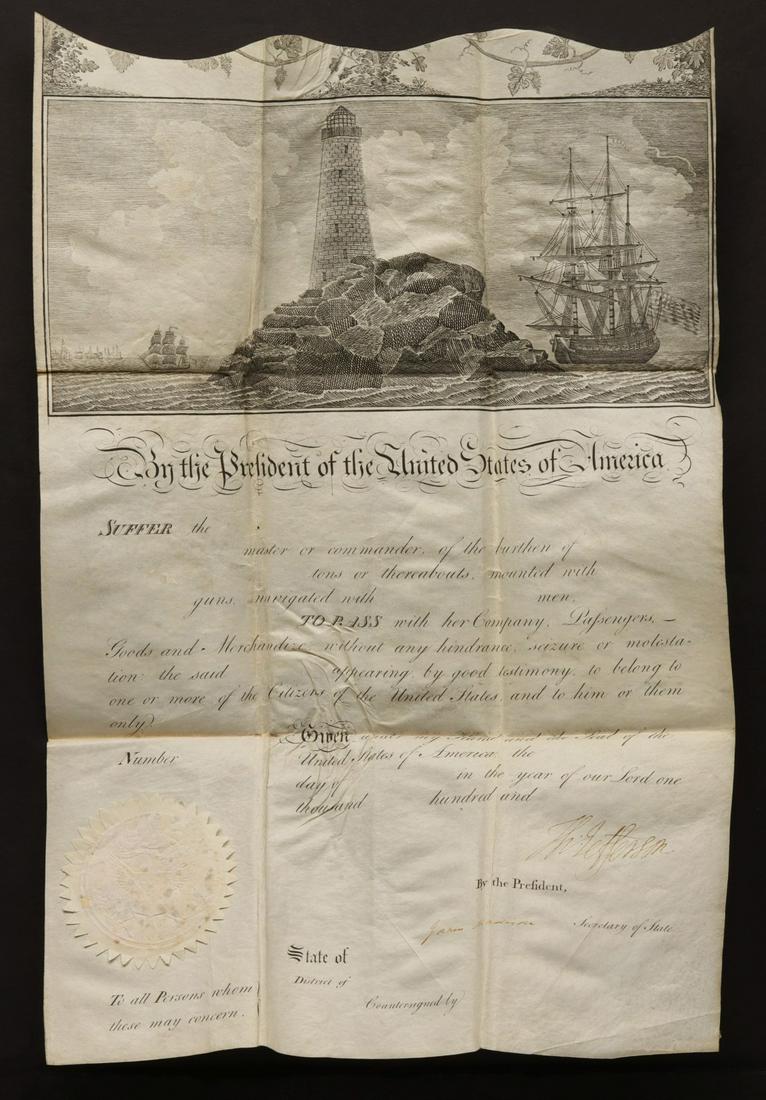 By the President of the United States of America
SUFFER the
master or commander, of the burthen of
tons or thereabouts, mounted with
guns, navigated with men,
TO PASS with her Company, Passengers, —
Goods and Merchandize without any hindrance, seizure or molesta-
tion: the said appearing by good testimony, to belong to
one or more of the Citizens of the United States, and to him or them
only.
Given under my Hand and the Seal of the
Number
United States of America, the
day of in the year of our Lord one
thousand hundred and
Th: Jefferson
By the President,
James Madison Secretary of State.
State of
District of
To all Persons whom Countersigned by
these may concern.